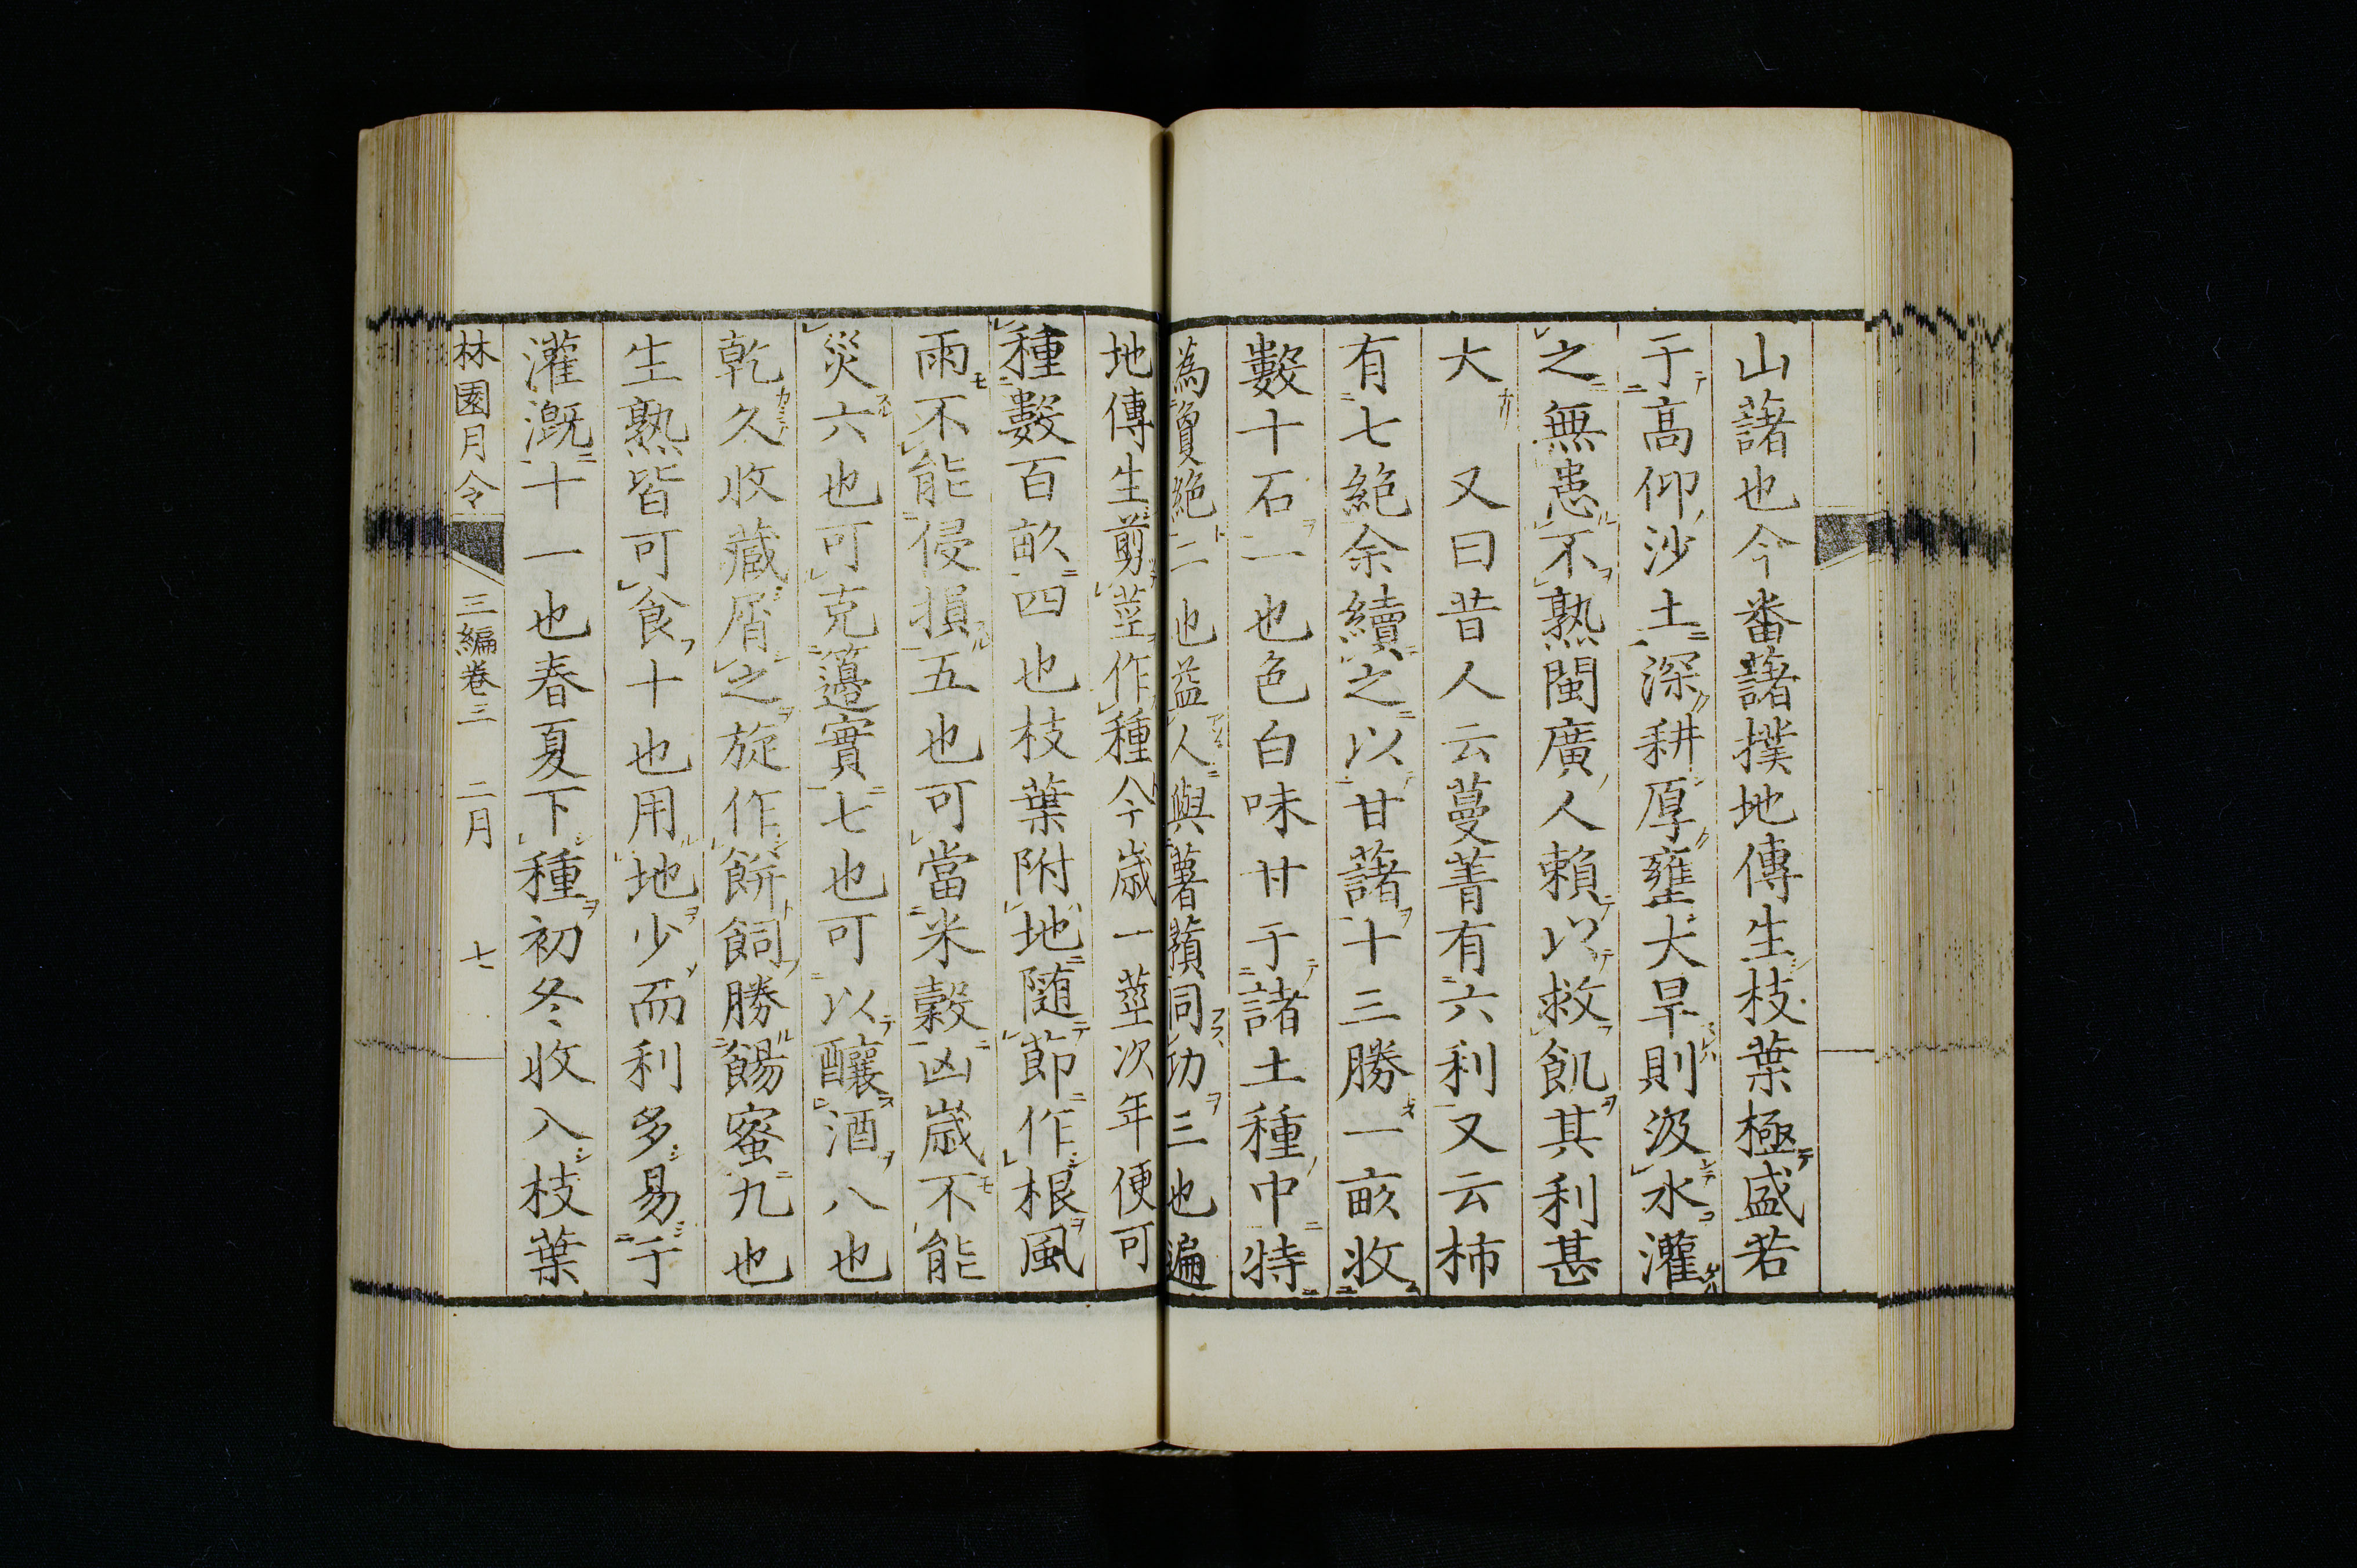 山藷也今番藷撲地傳生枝葉極盛若
于高仰沙土深耕厚壅大旱則汲水灌
之無患不熟閩廣人賴以救飢其利甚
大　又曰昔人云蔓菁有六利又云柿
有七絶余續之以甘藷十三勝一畝收
數十石一也色白味甘于諸土種中特
為敻絶二也益人與薯蕷同功三也遍
地傳生剪莖作種今歳一莖次年便可
種數百畝四也枝葉附地随節作根風
雨不能侵損五也可當米穀凶嵗不能
災六也可充籩實七也可以釀酒八也
乾久收藏屑之旋作餅飼勝餳蜜九也
生熟皆可食十也用地少而利多易于
灌漑十一也春夏下種初冬收入枝葉
林園月令　三編卷三　二月　七